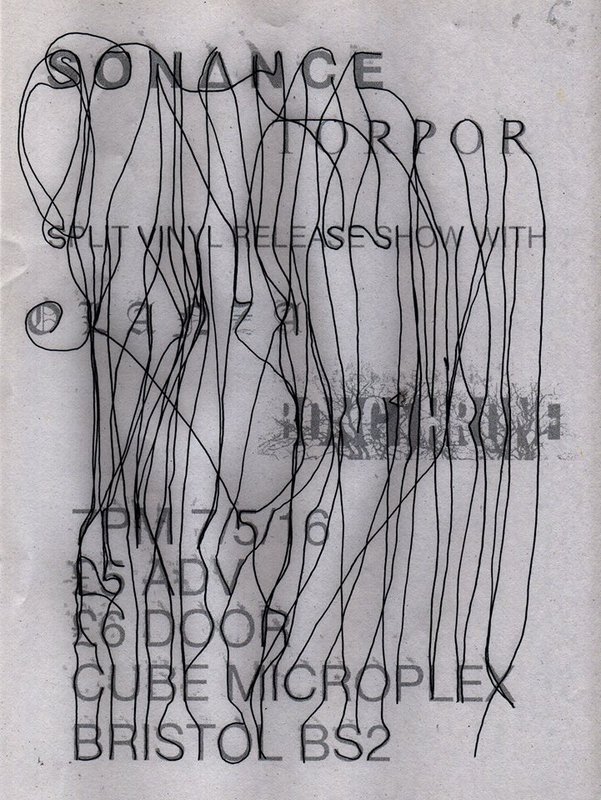 SONANCE
TORPOR
SPLIT VINYL RELEASE SHOW WITH
Olanza
7PM 7/5/16
£5 ADV
£6 DOOR
CUBE MICROPLEX
BRISTOL BS2